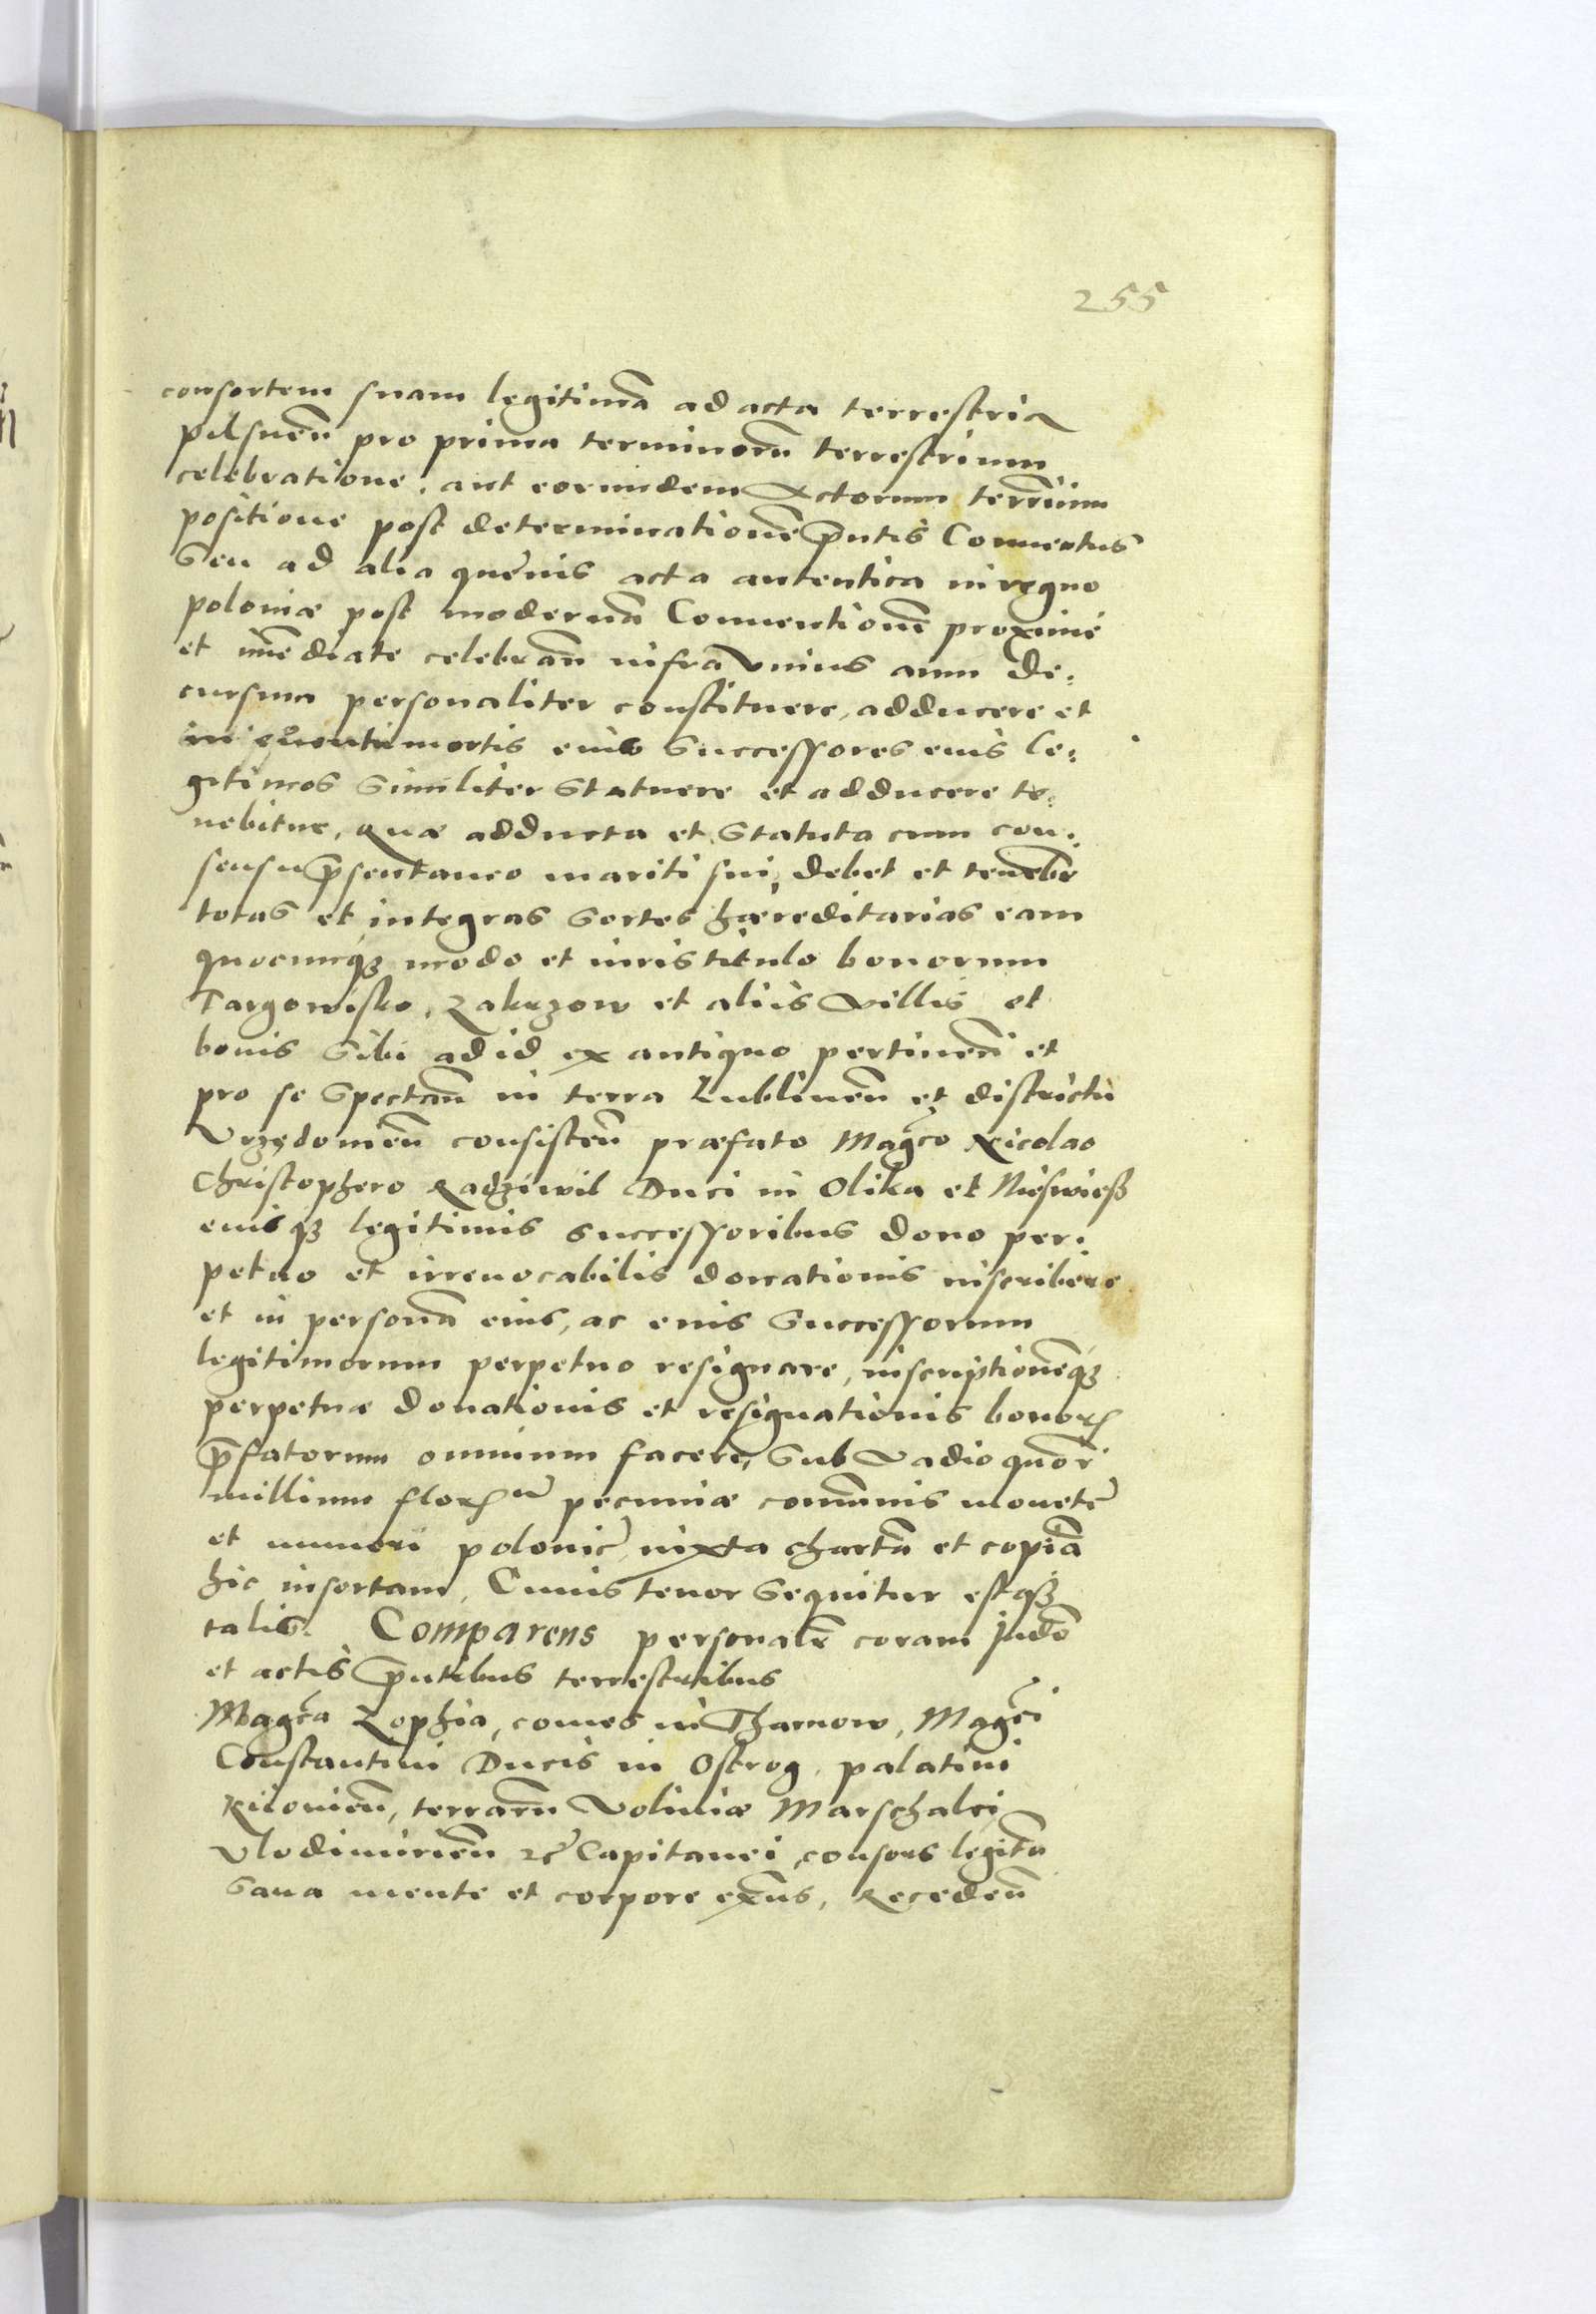 255
consortem suam legitimā ad acta terrestria
pilsnen̄ pro prima terminorū terrestrium
celebratione, aut eorundem Actorum terrīum
positione post determinationē p̄ntis Conuentus
seu ad alia queuis acta autentica in regno
poloniæ post modernā Conuentionē proxime
et im̄ediate celebran̄ infra vnius anni de:
cursum personaliter constituere, adducere et
in euentū mortis eius successores eius le:
gitimos similiter statuere et adducere te:
nebitur, quæ adducta et statuta cum con:
sensu p̄sentaneo mariti sui, debet et tenebr̄
totas et integras sortes hæreditarias eam
quocunqȝ modo et iuris titulo bonorum
Targowisko, Zakrzow et aliis villis et
bonis sibi ad id ex antiquo pertinen̄ et
pro se spectan̄ in terra Lublinen̄ et districtu
Vrzędowien̄ consisten̄ præfato Magc̄o Nicolao
Christophero Radziwil Duci in Olika et Nieswieß
eiusqȝ legitimis successoribus dono per:
petuo et irreuocabilis donationis inscribere
et in personā eius, ac eius successorum
legitimorum perpetuo resignare, inscriptionēqȝ
perpetuæ donationis et resignationis bonorꝝ
p̄fatorum omnium facere, sub vadio quor̄
millium florꝝ pecuniæ com̄unis monete
et numeri polonic̄ iuxta chartā et copiā
hic insertam, Cuius tenor sequitur estqȝ
talis. Comparens personalr̄ coram Judō
et actis p̄ntibus terrestribus
Magc̄a Zophia, comes in Tharnow, Magc̄i
Constantini Ducis in Ostrog, palatini
Kiiouien̄, terrarū Voliniæ Marschalci,
Vlodimirien̄ zc̄ Capitanei, consors legitā
sana mente et corpore exn̄s, Receden̄